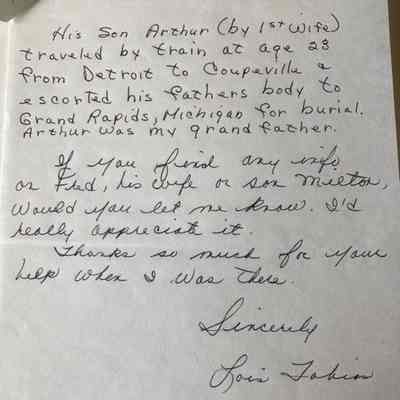 His Son Arthur (by 1st wife)
traveled by train at age 23
from Detroit to Coupeville &
escorted his fathers body to
Grand Rapids, Michigan for burial.
Arthur was my grand father.
If you find any info
on Fred, his wife or son Milton,
would you let me know. I'd
really appreciate it.
Thanks so much for your
help when I was there.
Sincerely
Lois Tobin